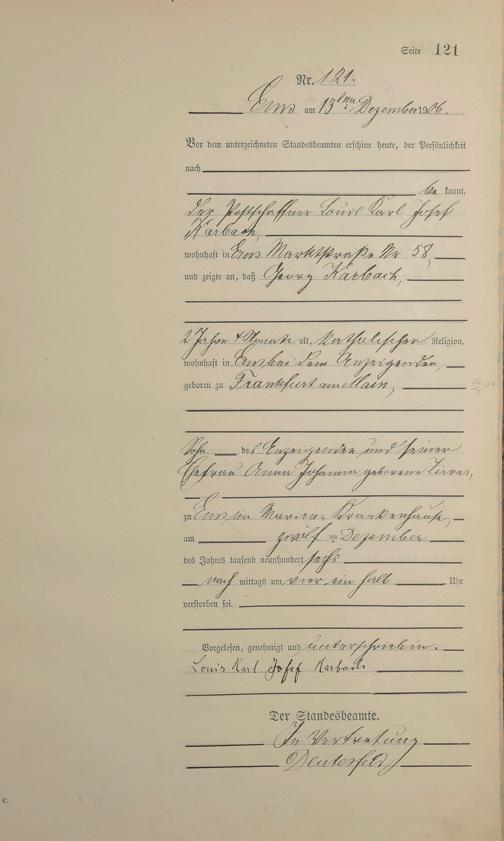 Seite 121
Nr. 121.
Ems am 13ten Dezember 1906.
Vor dem unterzeichneten Standesbeamten erschien heute, der Persönlichkeit
nach
be kannt,
der Postschaffner Louis Karl Josef
Karbach,
wohnhaft in Ems Marktstraße Nr 58,
und zeigte an, daß Georg Karbach,
2 Jahre 4 Monate alt, katholischer Religion,
wohnhaft in Ems bei dem Anzeigenden,
geboren zu Frankfurt am Main,
Sohn des Anzeigenden und seiner
Ehefrau Anna Johanna geborene
zu Ems im Marien-Krankenhause,
am zwölf ten Dezember
des Jahres tausend neunhundert sechs
nach mittags um vier ein halb Uhr
verstorben sei.
Vorgelesen, genehmigt und unterschrieben.
Louis Karl Josef Karbach
Der Standesbeamte.
In Vertretung
c.